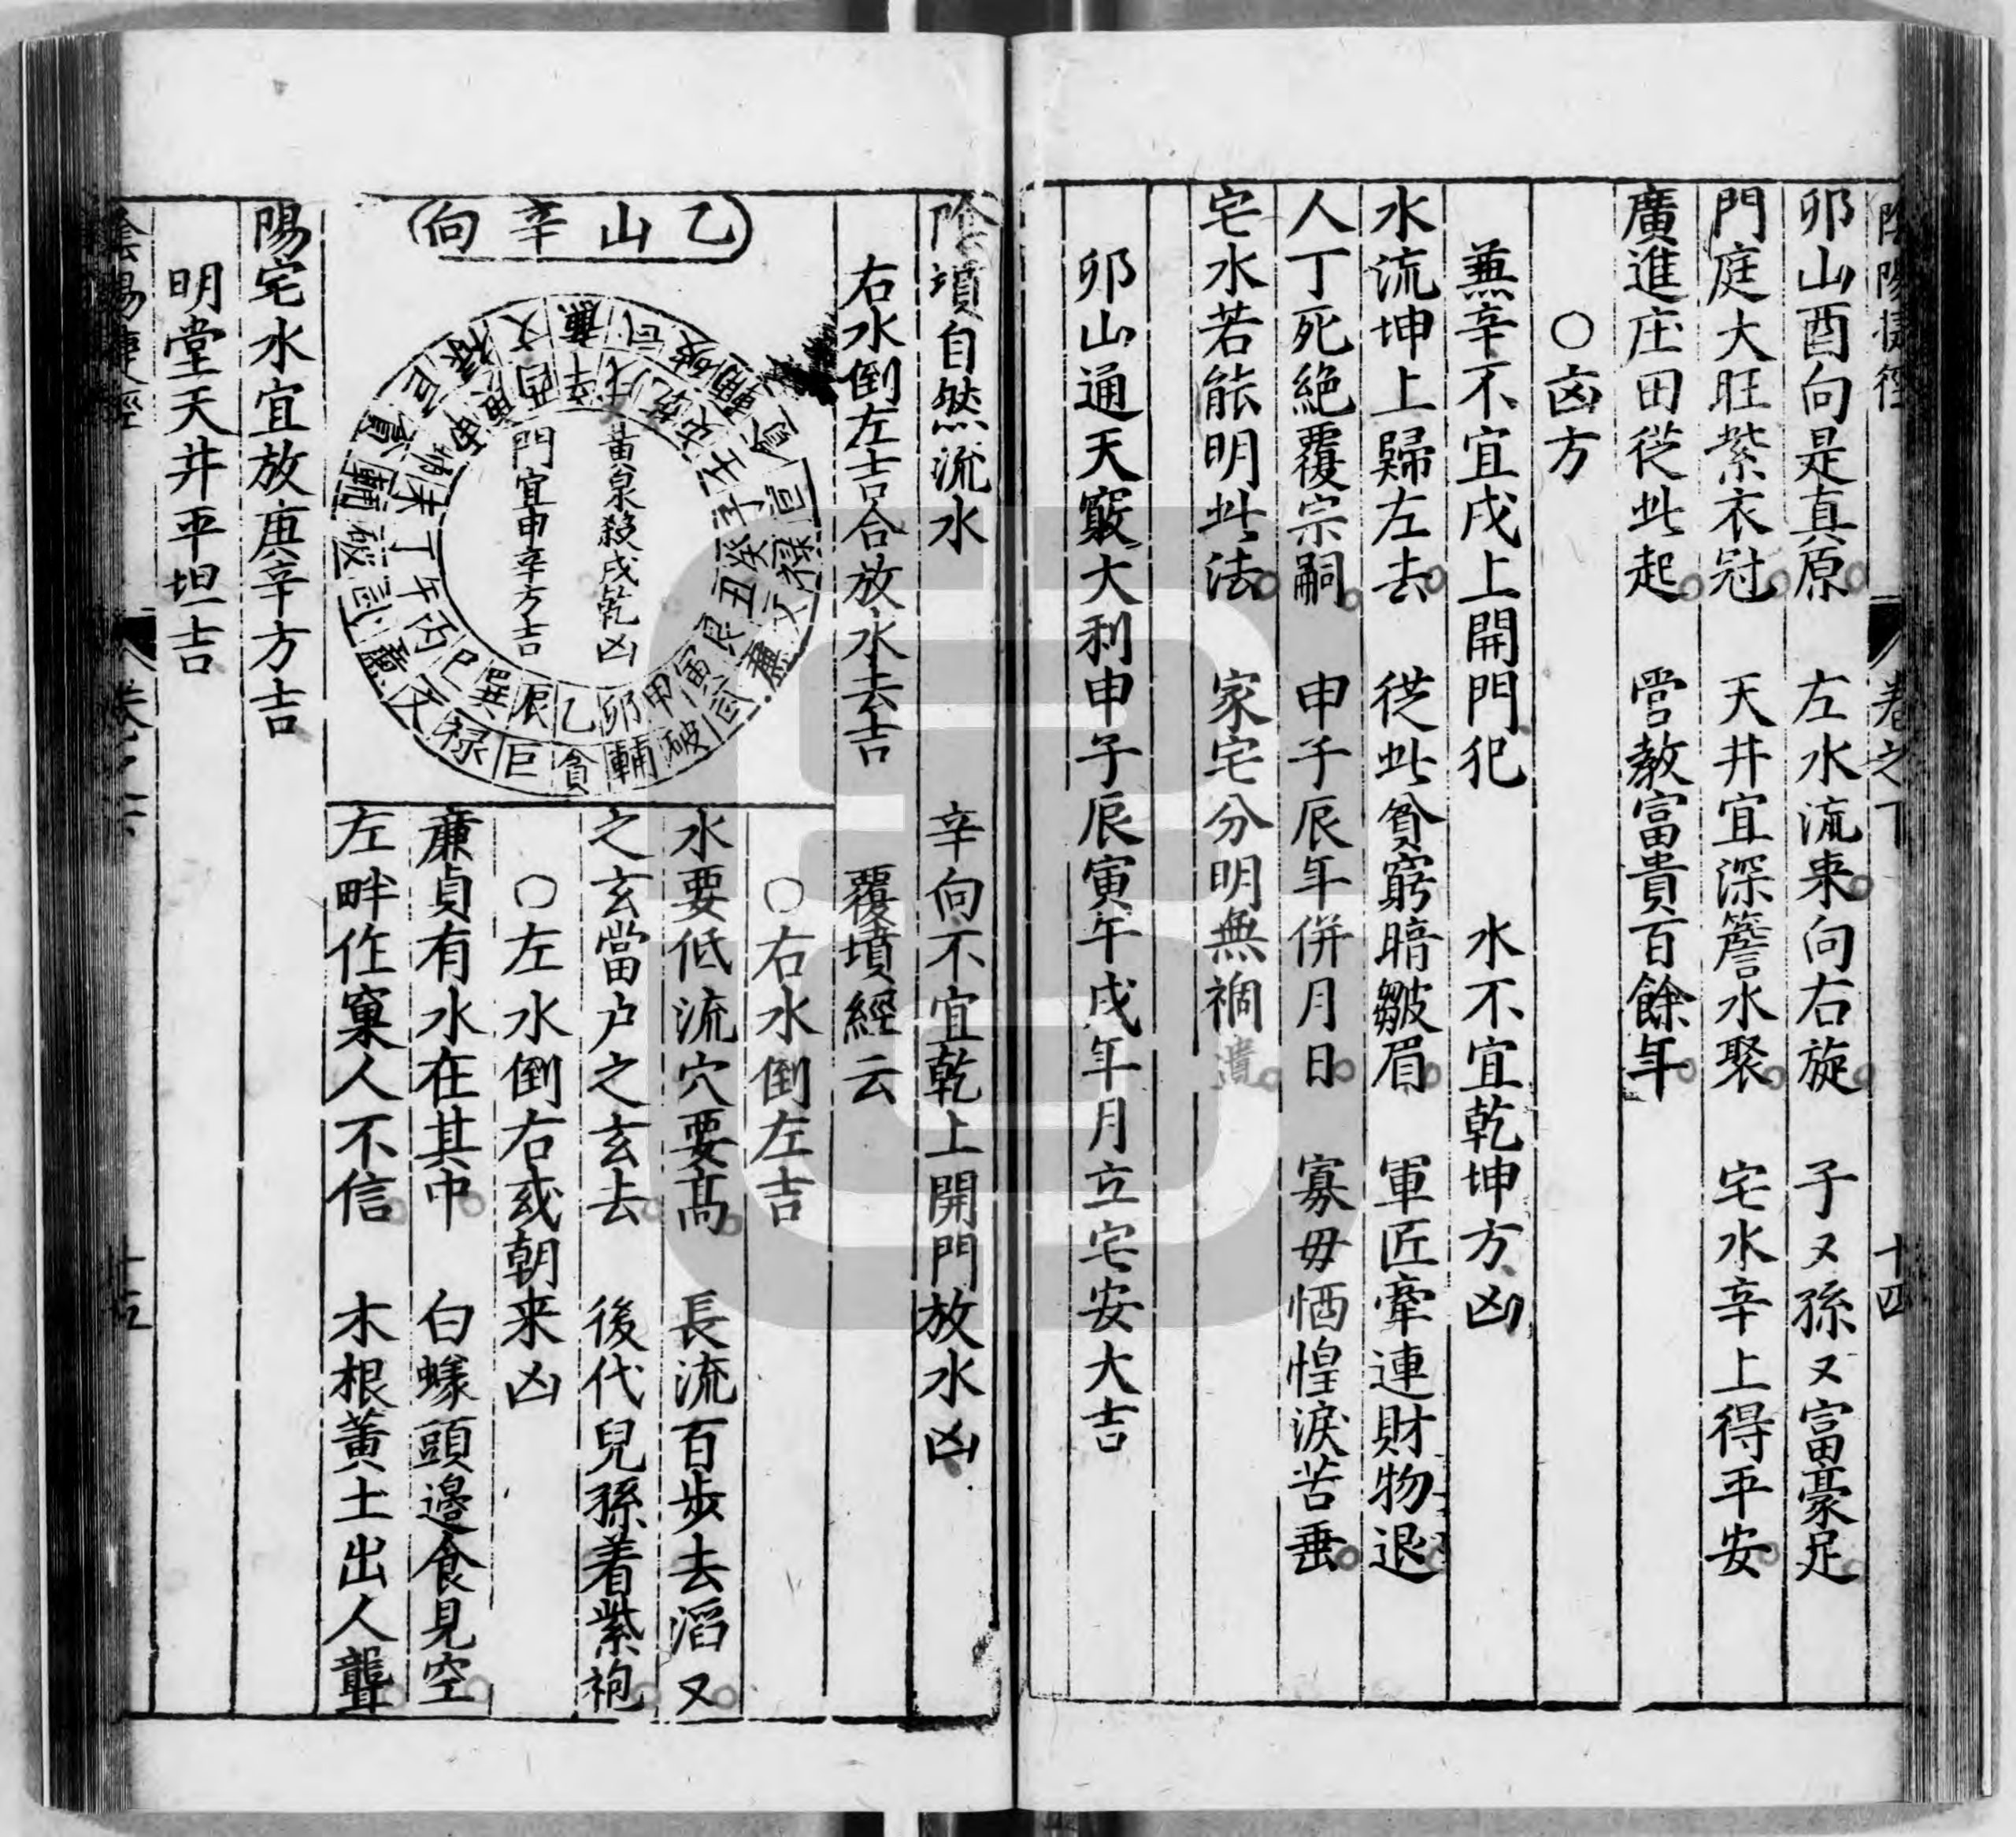 陰陽捷徑 卷之下 十四
卯山酉向是真原 左水流來向右旋 子又孫又富豪足
門庭大旺紫衣冠 天井宜深簷水聚 宅水辛上得平安
廣進庄田從此起 管教富貴百餘年
○凶方
兼辛不宜戌上開門犯 水不宜乾坤方凶
水流坤上歸左去 從此貧窮暗皺眉 軍匠牽連財物退
人丁死絕覆宗嗣 申子辰年併月日 寡母恓惶淚苦垂
宅水若能明此法 家宅分明無禍
卯山通天竅大利申子辰寅午戌年月立宅安大吉
陰墳自然流水 辛向不宜乾上開門放水凶
右水倒左吉合放水去吉 覆墳經云
乙山辛向
黃泉殺戌乾凶
門宜申辛方吉
壬子癸丑艮寅甲卯乙辰巽巳丙午丁未坤申庚酉辛戌乾亥
貪巨祿文廉武破輔貪巨祿文廉武破輔貪巨祿文廉武破輔
○右水倒左吉
水要低流穴要高 長流百步去滔又
之玄當户之玄去 後代兒孫着紫袍
○左水倒右或朝来凶
廉貞有水在其中 白蟻頭邉食見空
左畔作窠人不信 木根黃土出人聾
陽宅水宜放庚辛方吉
明堂天井平坦吉
陰陽捷徑